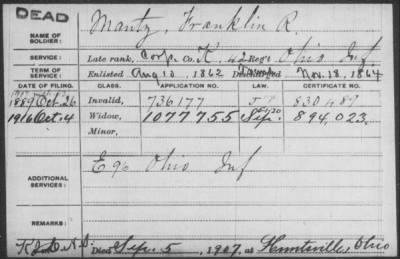 DEAD
NAME OF SOLDIER: Mantz, Franklin R.
SERVICE: Late rank, Corp. Co. K, 42 Reg't Ohio Inf.
TERM OF SERVICE: Enlisted Aug 10, 1862 Discharged Nov. 18, 1864
DATE OF FILING. CLASS. APPLICATION NO. LAW. CERTIFICATE NO.
1889 Oct. 26 Invalid, 736177 830487
1916 Oct. 4 Widow, 1077755 Sep. 894,023.
Minor,
ADDITIONAL SERVICES: E 96 Ohio Inf
REMARKS:
Died Sep. 5, 1907, at Huntsville, Ohio